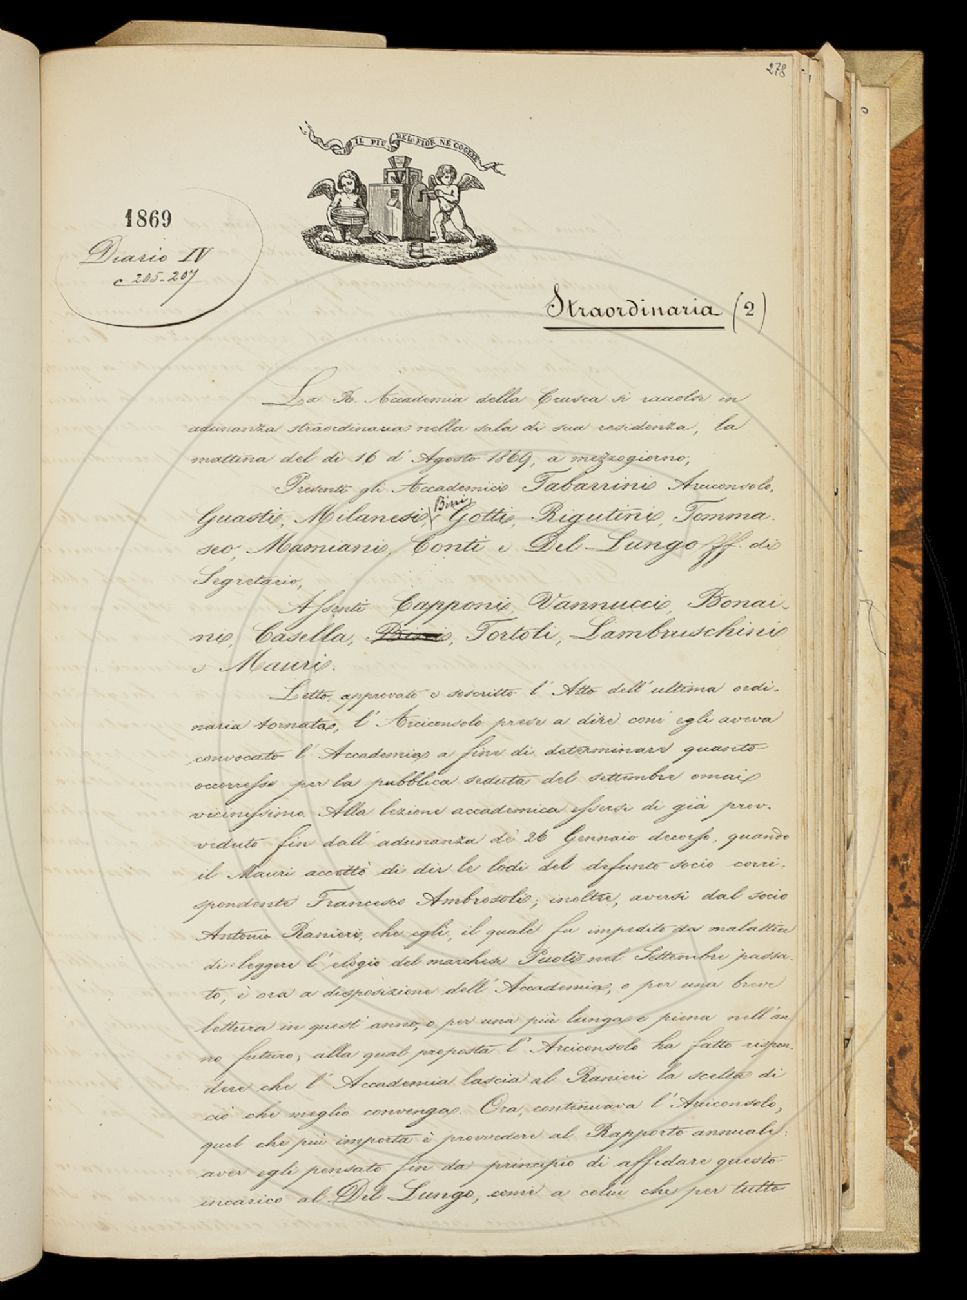 278
IL PIÙ BEL FIOR NE COGLIE
1869
Diario IV
c 205-207
Straordinaria (2)
La R. Accademia della Crusca si raccolse in
adunanza straordinaria nella sala di sua residenza, la
mattina del dì 16 d'Agosto 1869, a mezzogiorno,
Presenti gli Accademici Tabarrini Arciconsolo,
Guasti, Milanesi, Bini Gotti, Rigutini, Tomma-
seo, Mamiani, Conti e Del-Lungo ff. di
Segretario,
Assenti Capponi, Vannucci, Bonai-
ni, Casella, Bini, Tortoli, Lambruschini
e Mauri.
Letto, approvato e sescritto l'Atto dell'ultima ordi-
naria tornata, l'Arciconsolo prese a dire com'egli aveva
convocato l'Accademia a fine di determinare quanto
occorresse per la pubblica seduta del settembre omai
vicinissimo. Alla lezione accademica essersi di già prov-
veduto fin dall'adunanza de' 26 Gennaio decorso, quando
il Mauri accettò di dir le lodi del defunto socio corri-
spondente Francesco Ambrosoli; inoltre, aversi dal socio
Antonio Ranieri, che egli, il quale fu impedito da malattia
di leggere l'elogio del marchese Puoti nel Settembre passa-
to, è ora a disposizione dell'Accademia, o per una breve
lettura in quest'anno, o per una più lunga e piena nell'an-
no futuro; alla qual proposta l'Arciconsolo ha fatto rispon-
dere che l'Accademia lascia al Ranieri la scelta di
ciò che meglio convenga. Ora, continuava l'Arciconsolo,
quel che più importa è provvedere al Rapporto annuale:
aver egli pensato fin da principio di affidare questo
incarico al Del Lungo, come a colui che per tutto